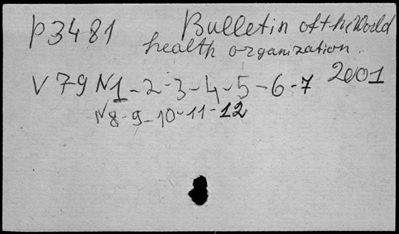 p3481 Bulletin of the World
health organization.
V 79 N1-2-3-4-5-6-7 2001
N8-9-10-11-12